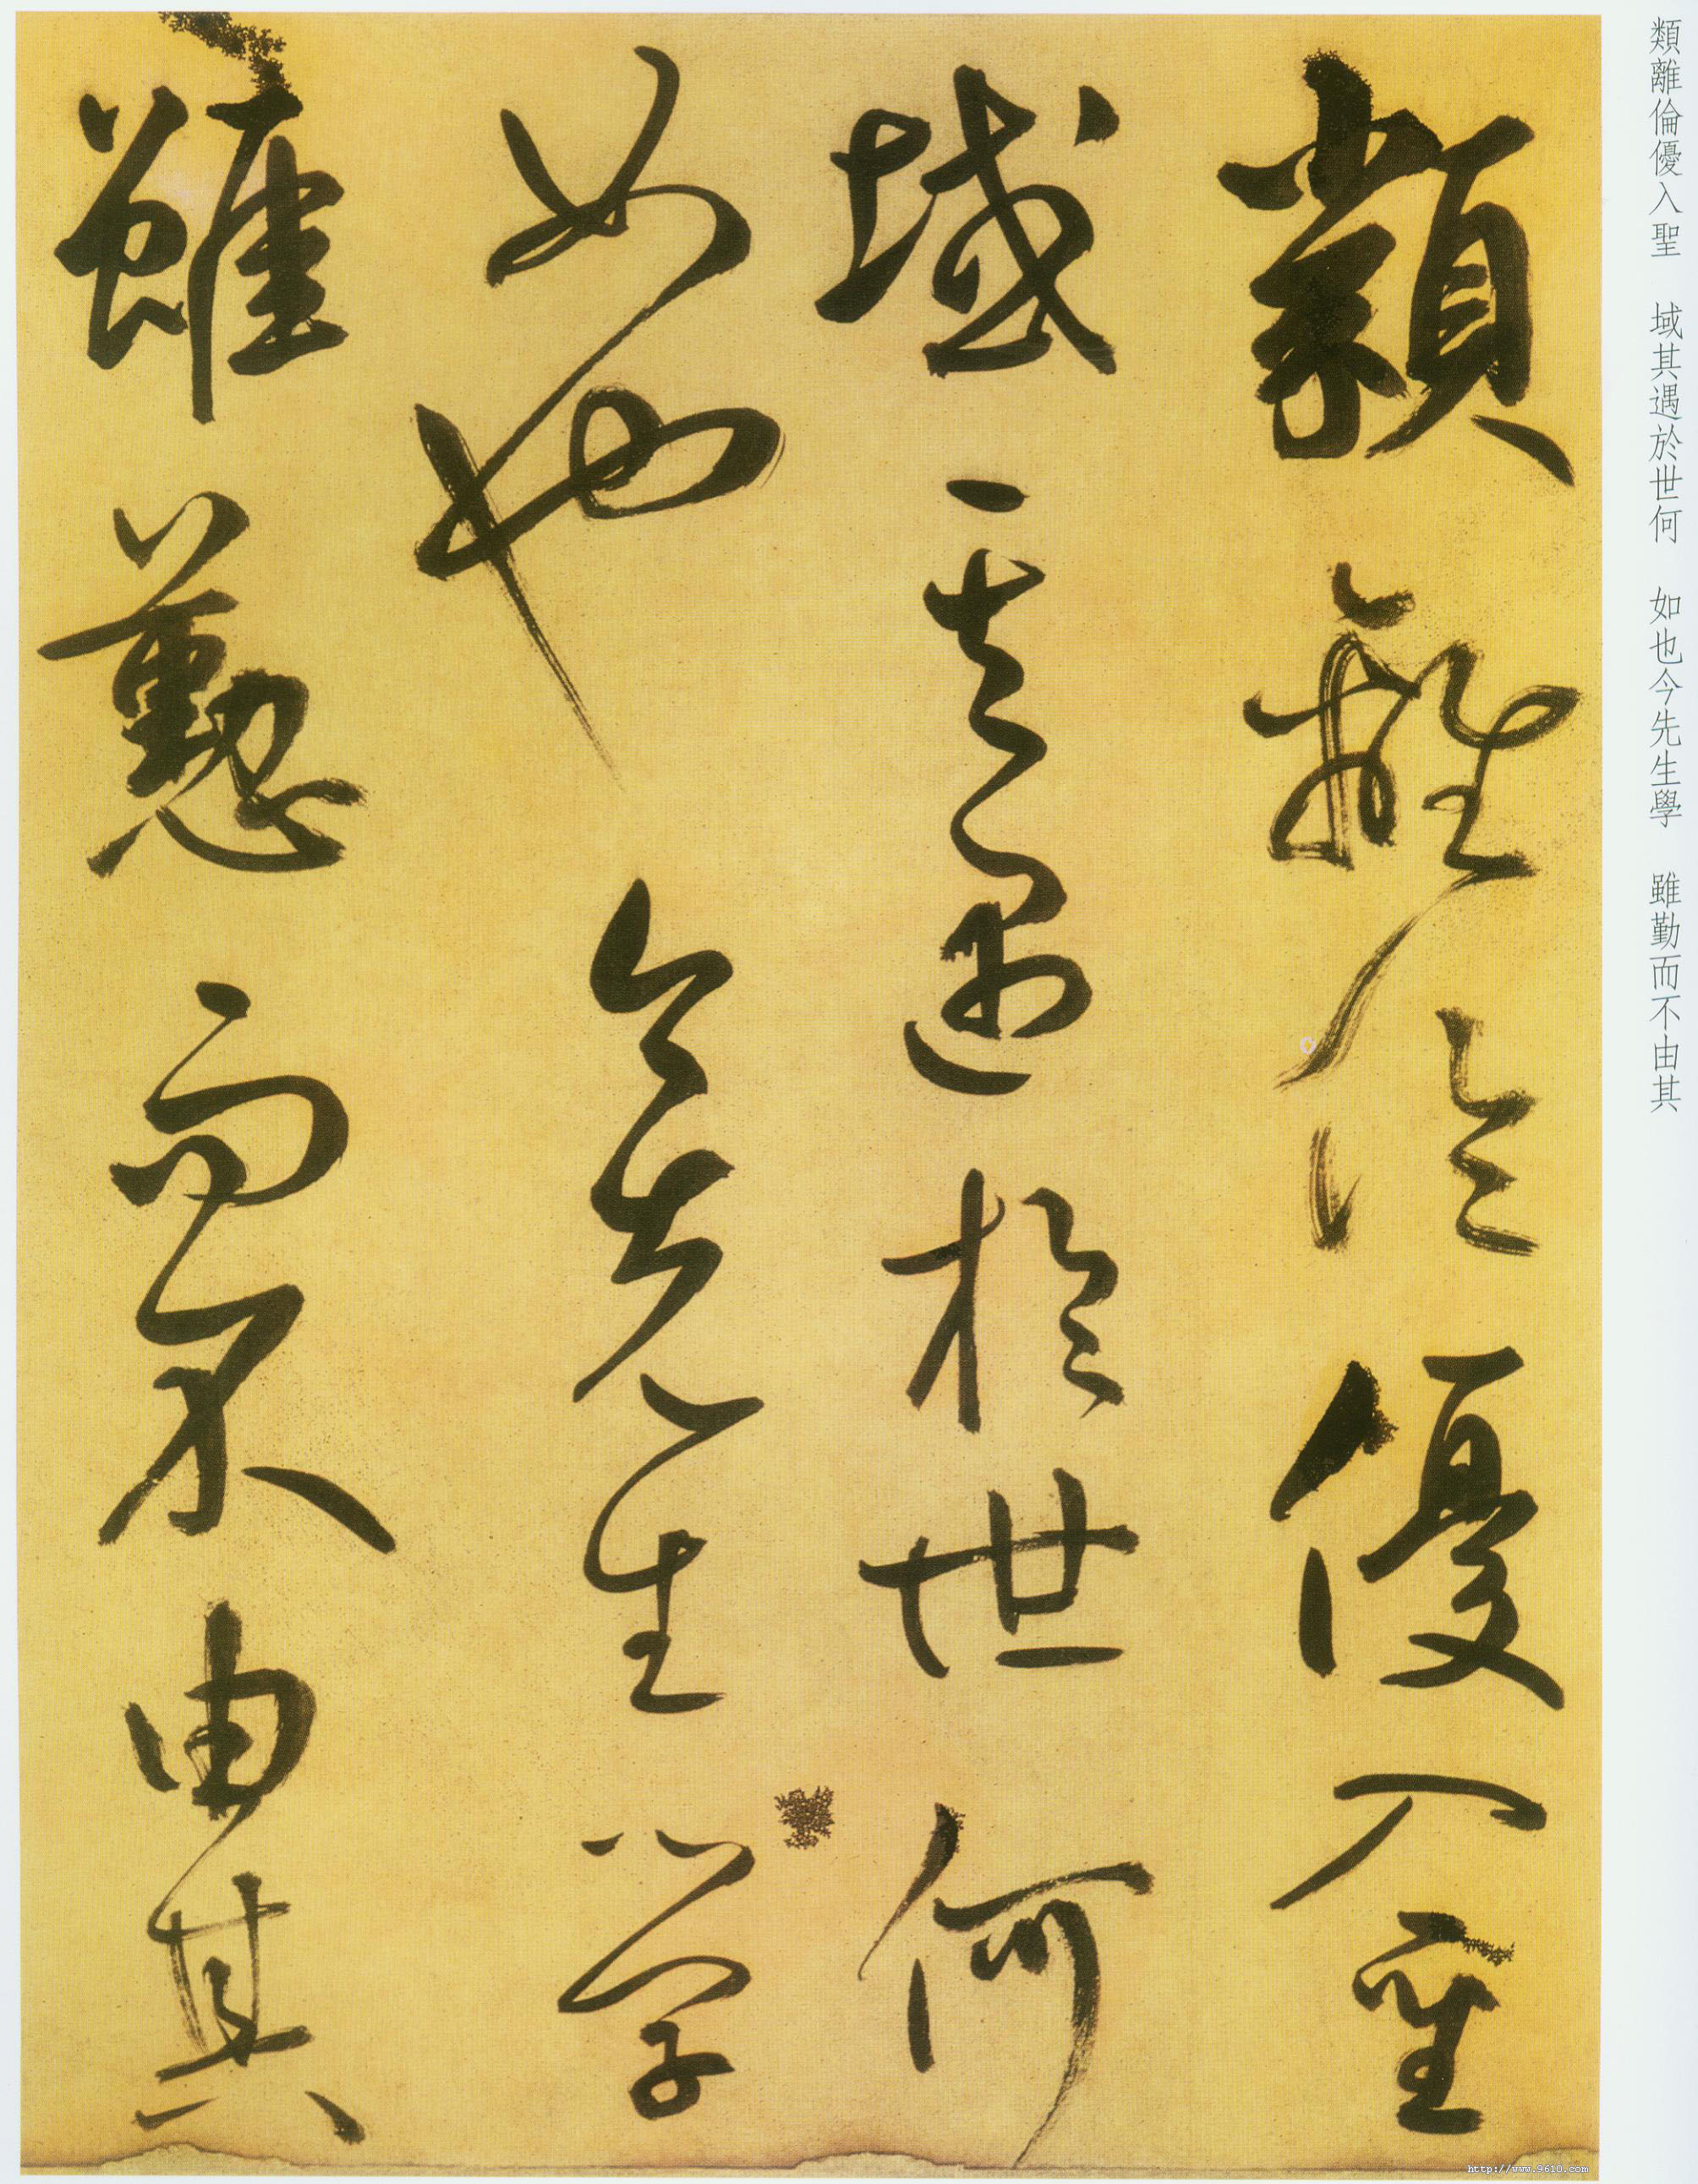 類離倫優入聖
域其遇於世何
如也今先生學
雖懃而不由其
類離倫優入聖 域其遇於世何 如也今先生學 雖勤而不由其
http://www.9610.com